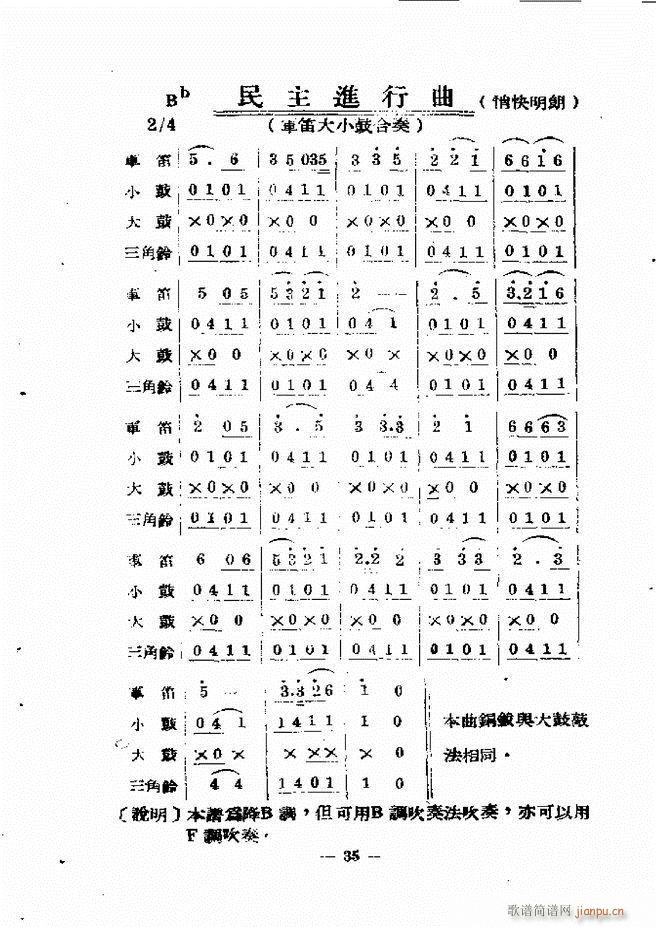 Bb 民主進行曲 (愉快明朗)
2/4 (軍笛大小鼓合奏)
軍笛 5 . 6 | 3 5 035 | 3 3 5 | 2 2 1 | 6 6 1 6
小鼓 0 1 0 1 | 0 4 1 1 | 0 1 0 1 | 0 4 1 1 | 0 1 0 1
大鼓 ×0×0 | ×0 0 | ×0×0 | ×0 0 | ×0×0
三角鈴 0 1 0 1 | 0 4 1 1 | 0 1 0 1 | 0 4 1 1 | 0 1 0 1
軍笛 5 0 5 | 5 3 2 1 | 2 — — | 2 . 5 | 3.2 1 6
小鼓 0 4 1 1 | 0 1 0 1 | 0 4 1 | 0 1 0 1 | 0 4 1 1
大鼓 ×0 0 | ×0×0 | ×0 × | ×0×0 | ×0 0
三角鈴 0 4 1 1 | 0 1 0 1 | 0 4 4 | 0 1 0 1 | 0 4 1 1
軍笛 2 0 5 | 3 . 5 | 3 3.3 | 2 1 | 6 6 6 3
小鼓 0 1 0 1 | 0 4 1 1 | 0 1 0 1 | 0 4 1 1 | 0 1 0 1
大鼓 ×0×0 | ×0 0 | ×0×0 | ×0 0 | ×0×0
三角鈴 0 1 0 1 | 0 4 1 1 | 0 1 0 1 | 0 4 1 1 | 0 1 0 1
軍笛 6 0 6 | 5 3 2 1 | 2.2 2 | 3 3 3 | 2 . 3
小鼓 0 4 1 1 | 0 1 0 1 | 0 4 1 1 | 0 1 0 1 | 0 4 1 1
大鼓 ×0 0 | ×0×0 | ×0 0 | ×0×0 | ×0 0
三角鈴 0 4 1 1 | 0 1 0 1 | 0 4 1 1 | 0 1 0 1 | 0 4 1 1
軍笛 5 — | 3.3 2 6 | 1 0
小鼓 0 4 1 | 1 4 1 1 | 1 0 本曲銅鈸與大鼓鼓
大鼓 ×0× | ×× ×× | × 0 法相同。
三角鈴 4 4 | 1 4 0 1 | 1 0
〔說明〕本譜爲降B調,但可用B調吹奏法吹奏,亦可以用
F調吹奏.
— 35 —
歌谱简谱网 jianpu.cn